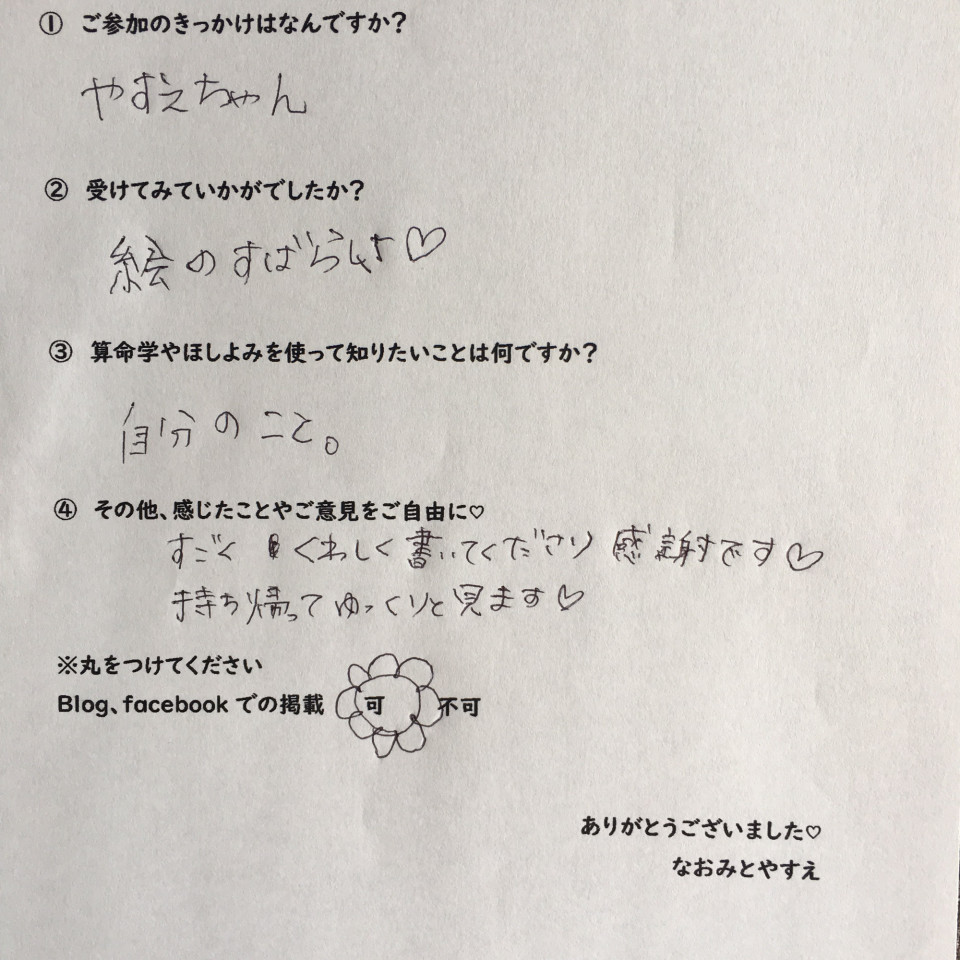 ① ご参加のきっかけはなんですか?
やすえちゃん
② 受けてみていかがでしたか?
絵のすばらしさ♡
③ 算命学やほしよみを使って知りたいことは何ですか?
自分のこと。
④ その他、感じたことやご意見をご自由に♡
すごくくわしく書いてくださり感謝です♡
持ち帰ってゆっくりと見ます♡
※丸をつけてください
Blog、facebook での掲載 可 不可
ありがとうございました♡
なおみとやすえ